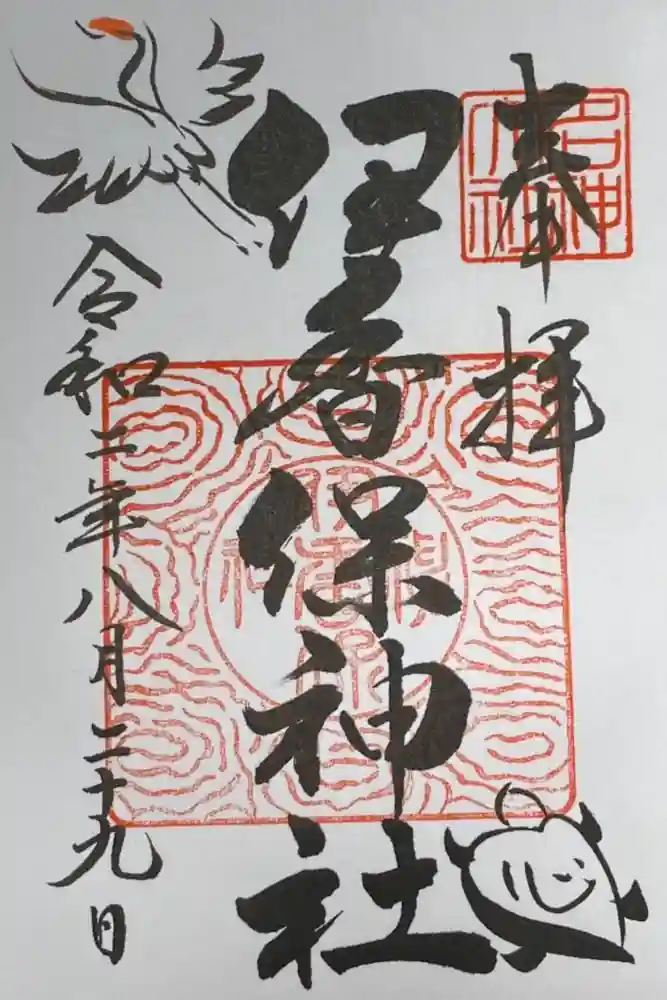 奉拝
名神大社
伊香保神社
令和二年八月二十九日